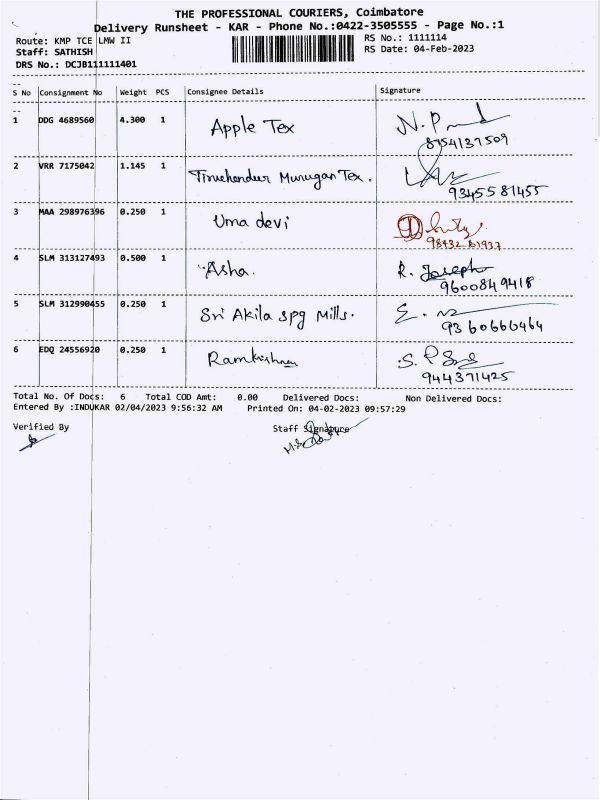 THE PROFESSIONAL COURIERS, Coimbatore
Delivery Runsheet - KAR - Phone No.:0422-3505555 - Page No.:1
Route: KMP TCE LMW II
RS No.: 1111114
Staff: SATHISH
RS Date: 04-Feb-2023
DRS No.: DCJB111111401
S No Consignment No Weight PCS Consignee Details Signature
1 DDG 4689560 4.300 1 Apple Tex N.P
8754137509
2 VRR 7175042 1.145 1 Tiruchendur Murugan Tex.
9345581455
3 MAA 298976396 0.250 1 Uma devi
4 SLM 313127493 0.500 1 Asha. R. Joseph
9600849418
5 SLM 312990455 0.250 1 Sri Akila spg Mills.
9360660464
6 EDQ 24556920 0.250 1 Ramkrishnan S. P
944371425
Total No. Of Docs: 6 Total COD Amt: 0.00 Delivered Docs: Non Delivered Docs:
Entered By :INDUKAR 02/04/2023 9:56:32 AM Printed On: 04-02-2023 09:57:29
Verified By Staff Signature